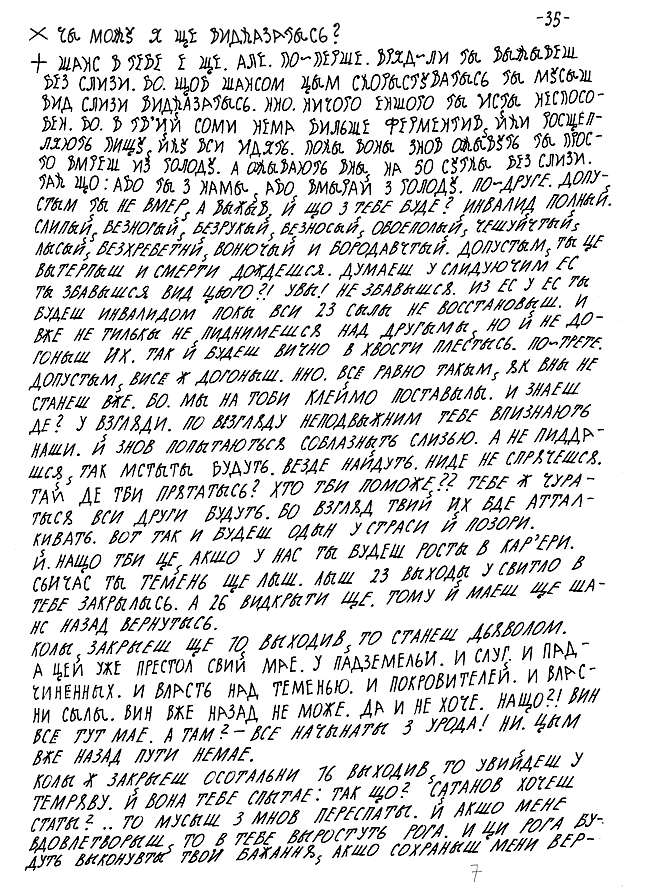 -35-
× ЧЫ МОЖУ Я ЩЕ ВИДКАЗАТЫСЬ?
+ ШАНС В ТЕБЕ Е ЩЕ. АЛЕ. ПО-ПЕРШЕ. ВРЯД-ЛИ ТЫ ВЫЖЫВЕШ
БЕЗ СЛИЗИ. БО. ЩОБ ШАНСОМ ЦЫМ СКОРЫСТУВАТЫСЬ ТЫ МУСЫШ
ВИД СЛИЗИ ВИДКАЗАТЫСЬ. ННО. НИЧОГО ЕНШОГО ТЫ ИСТЫ НЕСПОСО-
БЕН. БО. В ТВ'ИЙ СОМИ НЕМА БИЛЬШЕ ФЕРМЕНТИВ, ЙКИ РОСЩЕП-
ЛЯЮТЬ ПИЩУ, ЙКУ ВСИ ИДЯТЬ. ПОКЫ ВОНЫ ЗНОВ ОЖЫВУТЬ ТЫ ПРОС-
ТО ВМРЕШ ИЗ ГОЛОДУ. А ОЖЫВАЮТЬ ВНЫ, НА 50 СУТКЫ БЕЗ СЛИЗИ.
ТАК ЩО: АБО ТЫ З НАМЫ, АБО, ВМЫРАЙ З ГОЛОДУ. ПО-ДРУГЕ. ДОПУ-
СТЫМ ТЫ НЕ ВМЕР, А ВЫЖЫВ, Й ЩО З ТЕБЕ БУДЕ? ИНВАЛИД ПОЛНЫЙ.
СЛИПЫЙ, БЕЗНОГЫЙ, БЕЗРУКЫЙ, БЕЗНОСЫЙ, ОБОЕПОЛЫЙ, ЧЕШУЙЧТЫЙ,
ЛЫСЫЙ, БЕЗХРЕБЕТНИ, ВОНЮЧЫЙ И БОРОДАВЧТЫЙ. ДОПУСТЫМ, ТЫ ЦЕ
ВЫТЕРПЫШ И СМЕРТИ ДОЖДЕШСЯ. ДУМАЕШ У СЛИДУЮЧИМ ЕС
ТЫ ЗБАВЫШСЯ ВИД ЦЬОГО?! УВЫ! НЕ ЗБАВЫШСЯ. ИЗ ЕС У ЕС ТЫ
БУДЕШ ИНВАЛИДОМ ПОКЫ ВСИ 23 СЫЛЫ НЕ ВОССТАНОВЫШ. И
ВЖЕ НЕ ТИЛЬКЫ НЕ ПИДНИМЕШСЯ НАД ДРУГЫМЫ, НО Й НЕ ДО-
ГОНЫШ ИХ. ТАК Й БУДЕШ ВИЧНО В ХВОСТИ ПЛЕСТЫСЬ. ПО-ТРЕТЕ.
ДОПУСТЫМ, ВИСЕ Ж ДОГОНЫШ. ННО. ВСЕ РАВНО ТАКЫМ, ЯК ВНЫ НЕ
СТАНЕШ ВЖЕ. БО. МЫ НА ТОБИ КЛЕЙМО ПОСТАВЫЛЫ. И ЗНАЕШ
ДЕ? У ВЗГЛЯДИ. ПО ВЗГЛЯДУ НЕПОДВЫЖНИМ ТЕБЕ ВПИЗНАЮТЬ
НАШИ. Й ЗНОВ ПОПЫТАЮТЬСЯ СОБЛАЗНЫТЬ СЛИЗЬЮ. А НЕ ПИДДА-
ШСЯ, ТАК МСТЫТЫ БУДУТЬ. ВЕЗДЕ НАЙДУТЬ. НИДЕ НЕ СПРЯЧЕШСЯ.
ТАЙ ДЕ ТБИ ПРЯТАТЫСЬ? ХТО ТБИ ПОМОЖЕ?? ТЕБЕ Ж ЧУРА-
ТЫСЯ ВСИ ДРУГИ БУДУТЬ. БО ВЗГЛЯД ТВИЙ ИХ БДЕ АТТАЛ-
КИВАТЬ. ВОТ ТАК И БУДЕШ ОДЫН У СТРАСИ Й ПОЗОРИ.
Й. НАЩО ТБИ ЦЕ, АКШО У НАС ТЫ БУДЕШ РОСТЫ В КАР'ЕРИ.
СЬИЧАС ТЫ ТЕМЕНЬ ЩЕ ЛЫШ. ЛЫШ 23 ВЫХОДЫ У СВИТЛО В
ТЕБЕ ЗАКРЫЛЫСЬ. А 26 ВИДКРЫТИ ЩЕ. ТОМУ Й МАЕШ ЩЕ ША-
НС НАЗАД ВЕРНУТЫСЬ.
КОЛЫ, ЗАКРЫЕШ ЩЕ 10, ВЫХОДИВ, ТО СТАНЕШ ДЬЯВОЛОМ.
А ЦЕЙ УЖЕ ПРЕСТОЛ СВИЙ МАЕ. У ПАДЗЕМЕЛЬИ. И СЛУГ, И ПАД-
ЧИНЁННЫХ. И ВЛАСТЬ НАД ТЕМЕНЬЮ. И ПОКРОВИТЕЛЕЙ. И ВЛАС-
НИ СЫЛЫ. ВИН ВЖЕ НАЗАД НЕ МОЖЕ. ДА И НЕ ХОЧЕ. НАЩО?! ВИН
ВСЕ ТУТ МАЕ. А ТАМ? - ВСЕ НАЧЫНАТЫ З УРОДА! НИ. ЦЫМ
ВЖЕ НАЗАД ПУТИ НЕМАЕ.
КОЛЫ Ж ЗАКРЫЕШ ОСОТАЛЬНИ 16 ВЫХОДИВ, ТО УВИЙДЕШ У
ТЕМРЯВУ. Й ВОНА ТЕБЕ СПЫТАЕ: ТАК ЩО? САТАНОВ ХОЧЕШ
СТАТЫ?.. ТО МУСЫШ З МНОВ ПЕРЕСПАТЫ. Й АКШО МЕНЕ
ВДОВЛЕТВОРЫШ, ТО В ТЕБЕ ВЫРОСТУТЬ РОГА. И ЦИ РОГА БУ-
ДУТЬ ВЫКОНУВТЫ ТВОИ БАЖАННЯ, АКШО СОХРАНЫШ МЕНИ ВЕР-
7